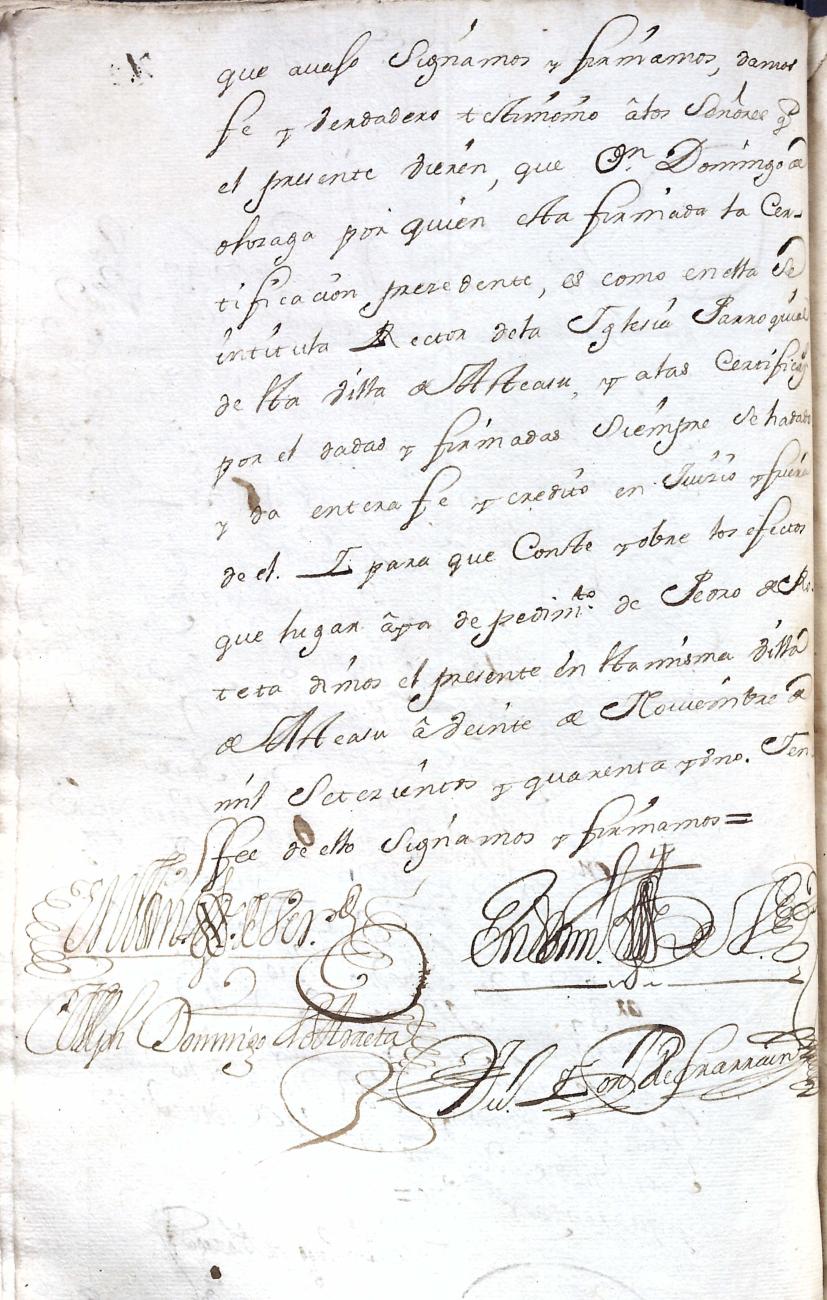 que avajo Signamos y firmamos, damos
fe y verdadero testimonio â los Señores q̃
el presente vieren, que Dn. Domingo de
olozaga por quien esta firmada la Cer-
tificacion prezedente, es como en ella Se
intitula Rector dela Iglesia Parroquial
de esta villa de Atteasu, y a las Certificas
por el dadas y firmadas Siempre Se ha dado
y da entera fe y credito en Juizio y fuera
de el. Y para que Conste y obre los efectos
que lugar âya de pedimto. de Pedro de Ro
teta dimos el presente en esta misma villa
de Atteasu â veinte de Noviembre de
mil Setezientos y quarenta y vno. Y en
ffee de ello Signamos y firmamos=
En testim.º de Ver.d
En testim.º de V.
Domingo de
Fu. de Larrain